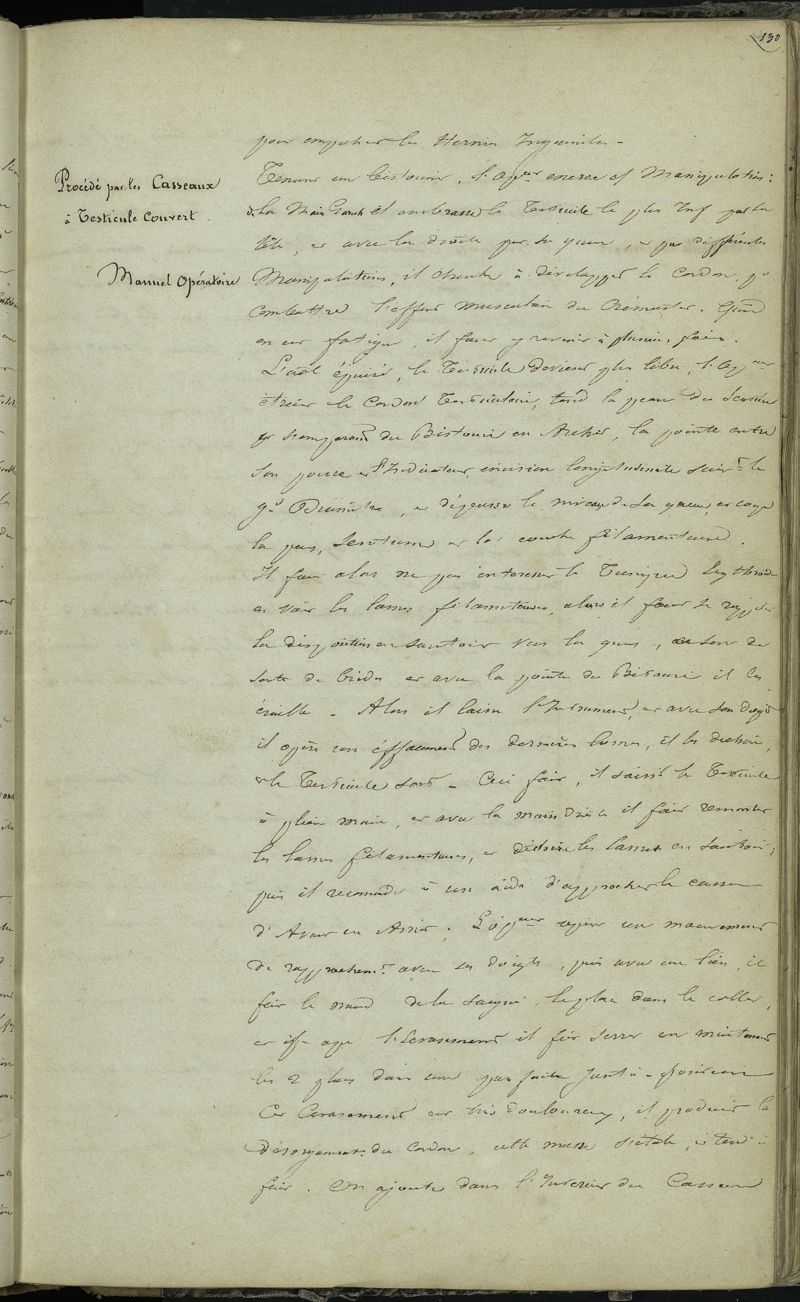 130
pour empecher les Hernies Inguinales -
Procédé par les Casseaux
à Testicule Couvert
Manuel Opératoire
Tenant un bistouri, l'opeur exerce des Manipulations :
de la Main Gauche il embrasse le Testicule le plus par la
tête, et avec la droite par sa queue, et par différentes
Manipulations, il cherche à développer le cordon, pr
combattre l'effort musculaire du Crémaster. Quand
on est fatigué, il faut y revenir à plusieurs fois.
épuisé, le Testicule devient plus libre, l'opeur
étreint le Cordon Testiculaire, tend la peau du Scrotum
et s'emparant du Bistouri en Archet, la pointe entre
son pouce et l'Indicateur, incision longitudinale suivt le
gd Diamètre, et dépasse le niveau de la queue, et coupe
la peau, Scrotum et la couche filamenteuse.
Il faut alors ne pas intéresser la Tunique Erythroïde
et voir les lames filamenteuses, alors il faut se rappeler
la disposition en sautoir vers la queue, ce sont des
sorte de brides et avec la pointe du Bistouri il les
éraille - Alors il laisse l'Instrument, et avec son doigt
il opère un effacement des dernières lames, il les déchire,
et le Testicule sort - Ceci fait, il saisit le Testicule
à pleine main, et avec la main droite il fait remonter
les lames filamenteuses, et déchire les lames en sautoir,
puis il recommande à un aide d'approcher le casseau
d'Avant en Arrière. L'opeur opère un mouvement
de rapprochemt avec ses doigts, puis avec un lien, il
fait le nœud de la saignée, le place dans le collet,
et l'écrasement il fait serrer en maintenant
les 2 dans une parfaite
Cet écrasement est très douloureux, il produit la
désorganisatn du cordon, cette masse s'étale, et tend à
fuir. On ajoute dans l'Intérieur du Casseau